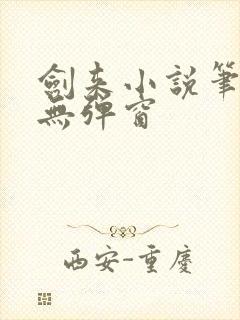 劍来小説筆
無彈窗
西安-重慶